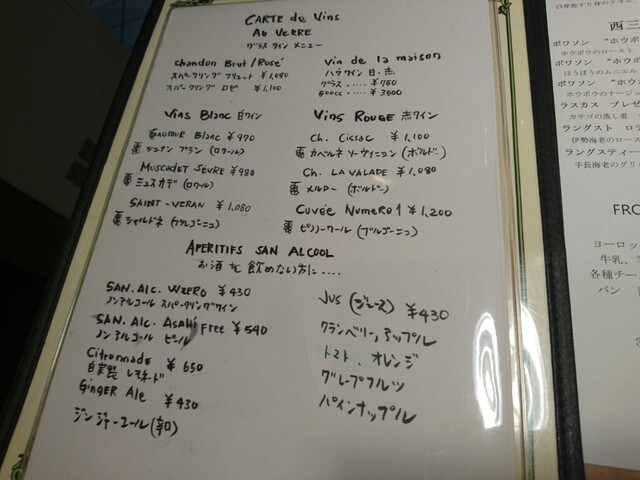 CARTE de Vins
AU VERRE
グラス ワイン メニュー
Chandon Brut/Rosé
スパークリング ブリュット ¥1,080
スパークリング ロゼ ¥1,100
Vin de la maison
ハウスワイン 白・赤
グラス ‥‥ ¥750
500cc ‥‥ ¥3500
Vins Blanc 白ワイン
Blanc ¥970
(ロワール)
MUSCADET SEVRE ¥980
ミュスカデ (ロワール)
SAINT-VERAN ¥1,080
シャルドネ (ブルゴーニュ)
Vins Rouge 赤ワイン
Ch. Cissac ¥1,100
カベルネ ソーヴィニヨン (ボルドー)
Ch. LA VALADE ¥1,080
メルロー (ボルドー)
Cuvée Numero 1 ¥1,200
ピノノワール (ブルゴーニュ)
APERITIFS SAN ALCOOL
お酒を飲めない方に‥‥
SAN. Alc. WZERO ¥430
ノンアルコール スパークリングワイン
SAN. Alc. ASAHI Free ¥540
ノンアルコール ビール
Citronnade ¥650
自家製 レモネード
GINGER Ale ¥430
ジンジャーエール(辛口)
Jus (ジュース) ¥430
クランベリー, アップル
トマト、オレンジ
グレープフルツ
パインナップル
西三
ポワソン "ホウボウ
ホウボウのロースト
ポワソン "ホウボ
ほうぼうのムニエル
ポワソン "ホウ
ホウボウのナージュ
ラスカス プレゼ
カサゴの蒸し煮
ラングスト ロテ
伊勢海老のロース
ラングスティー
手長海老のグリ
FRO
ヨーロッ
牛乳、
各種チー
パン